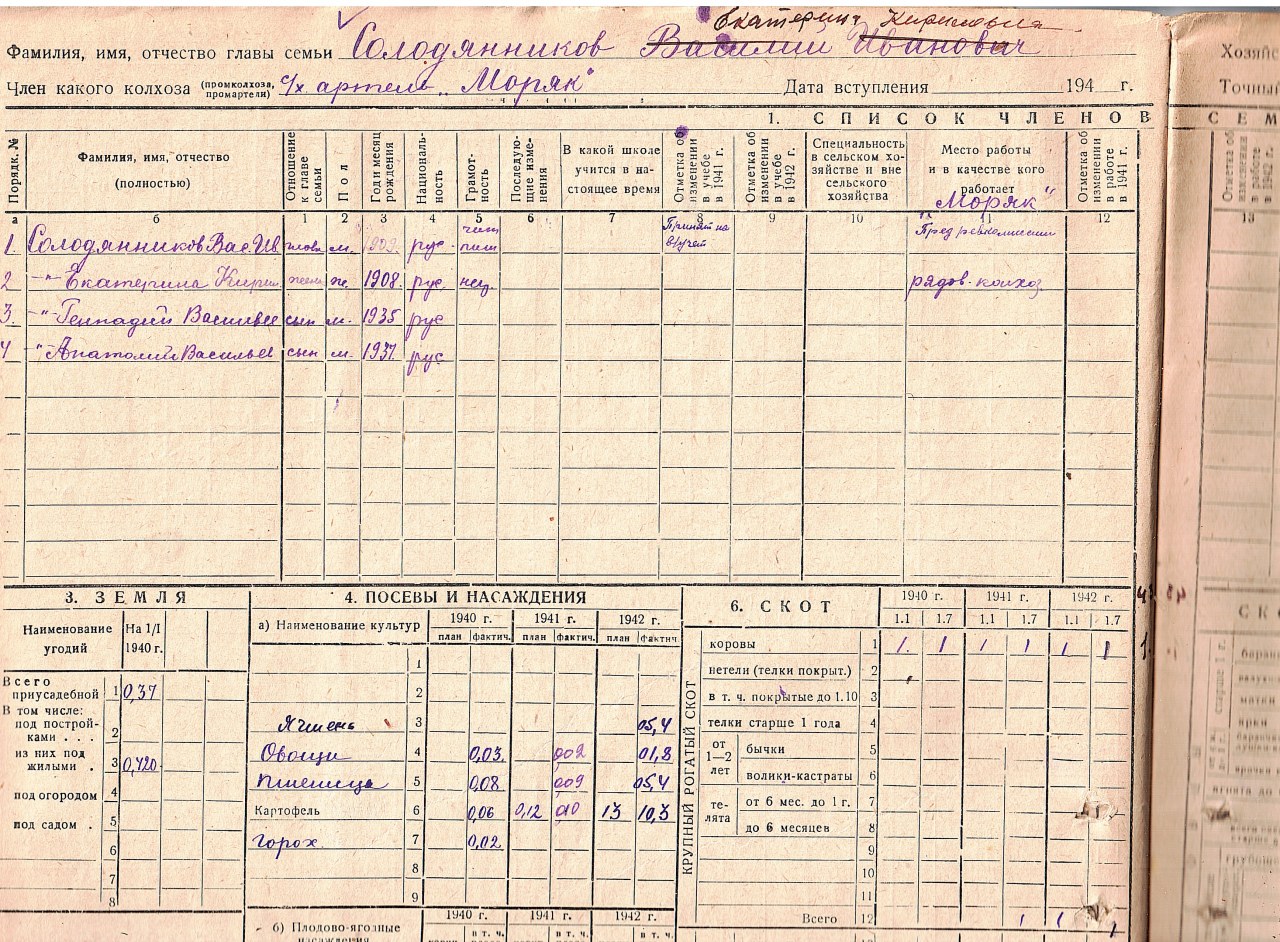 Екатерина Кириловна
Фамилия, имя, отчество главы семьи Солодянников Василий Иванович
Член какого колхоза (промколхоза, промартели) с/х артель „Моряк" Дата вступления 194 г.
Хозяйс
Точный
1. СПИСОК ЧЛЕНОВ
СЕМ
Порядк. №
Фамилия, имя, отчество (полностью)
Отношение к главе семьи
Пол
Год и месяц рождения
Националь-ность
Грамот-ность
Последую-щие изме-нения
В какой школе учится в на-стоящее время
Отметка об изменении в учебе в 1941 г.
Отметка об изменении в учебе в 1942 г.
Специальность в сельском хо-зяйстве и вне сельского хозяйства
Место работы и в качестве кого работает
Отметка об изменении в работе в 1941 г.
а б 1 2 3 4 5 6 7 8 9 10 11 12 13
„Моряк"
1. Солодянников Вас. Ив глава м. 1909. рус. чит пиш Принят на в/учет Пред ревкомиссии
2 -"- Екатерина Кирил. жена ж. 1908. рус. негр. рядов. колхоз.
3. -"- Геннадий Васильев сын м. 1935 рус
4 -"- Анатолий Васильев сын м. 1937. рус
3. ЗЕМЛЯ
Наименование угодий На 1/I 1940 г.
Всего приусадебной 1 0,37
В том числе:
под построй-ками . . . 2
из них под жилыми . 3 0,120
под огородом 4
под садом . 5
6
7
8
4. ПОСЕВЫ И НАСАЖДЕНИЯ
а) Наименование культур 1940 г. 1941 г. 1942 г.
план фактич. план фактич. план фактич.
1
2
Ячмень 3 05,4
Овощи 4 0,03. 002 01,8
Пшеница 5 0,08 009 05,4
Картофель 6 0,06 0,12 010 13 10,3
Горох 7 0,02
8
9
б) Плодово-ягодные насаждения 1940 г. 1941 г. 1942 г.
в т. ч. в т. ч. в т. ч.
6. СКОТ
1940 г. 1941 г. 1942 г.
1.1 1.7 1.1 1.7 1.1 1.7
КРУПНЫЙ РОГАТЫЙ СКОТ
коровы 1 1. 1 1 1 1 1
нетели (телки покрыт.) 2
в т. ч. покрытые до 1.10 3
телки старше 1 года 4
от 1—2 лет
бычки 5
волики-кастраты 6
те-лята
от 6 мес. до 1 г. 7
до 6 месяцев 8
9
10
11
Всего 12 1 1 1
СК
старше 1 г.